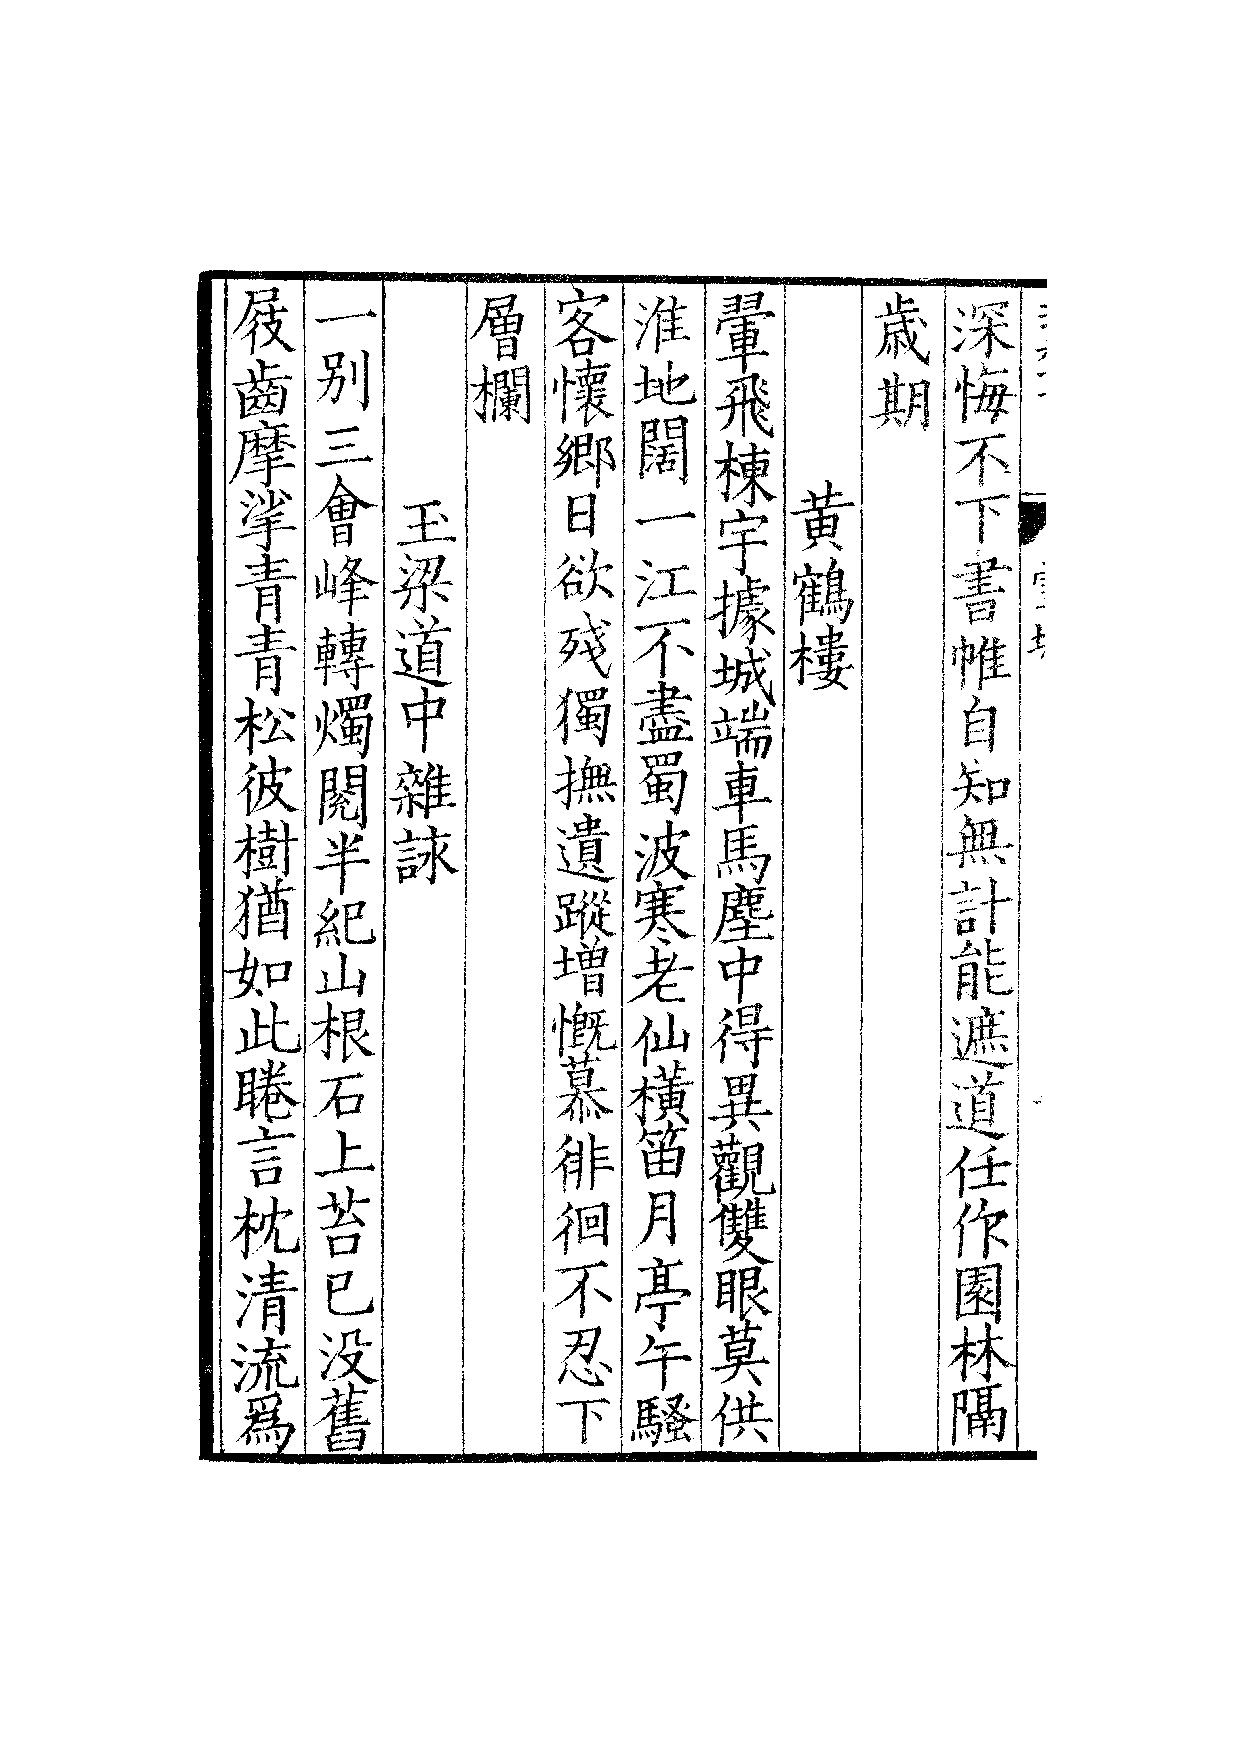 深悔不下書帷自知無計能遮道任作園林隔
歳期
黄鶴樓
翬飛棟宇據城端車馬塵中得異觀雙眼莫供
淮地闊一江不盡蜀波寒老仙橫笛月亭午騷
客懷鄉日欲殘獨撫遺蹤增慨慕徘徊不忍下
層欄
玉梁道中雜詠
一別三會峰轉燭閱半紀山根石上苔已没舊
屐齒摩挲青青松彼樹猶如此睠言枕清流爲